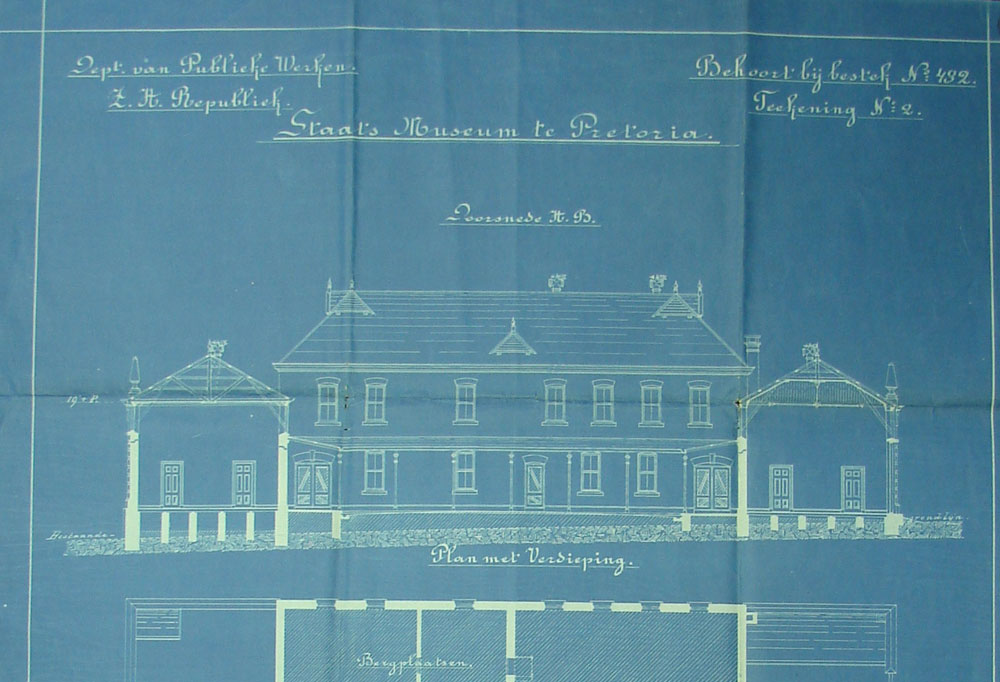 Dept. van Publieke Werken.
Z. A. Republiek.
Behoort bij bestek No 492.
Teekening No 2.
Staats Museum te Pretoria.
Doorsnede A. B.
Bestaande
Plan met Verdieping.
Bergplaatsen.